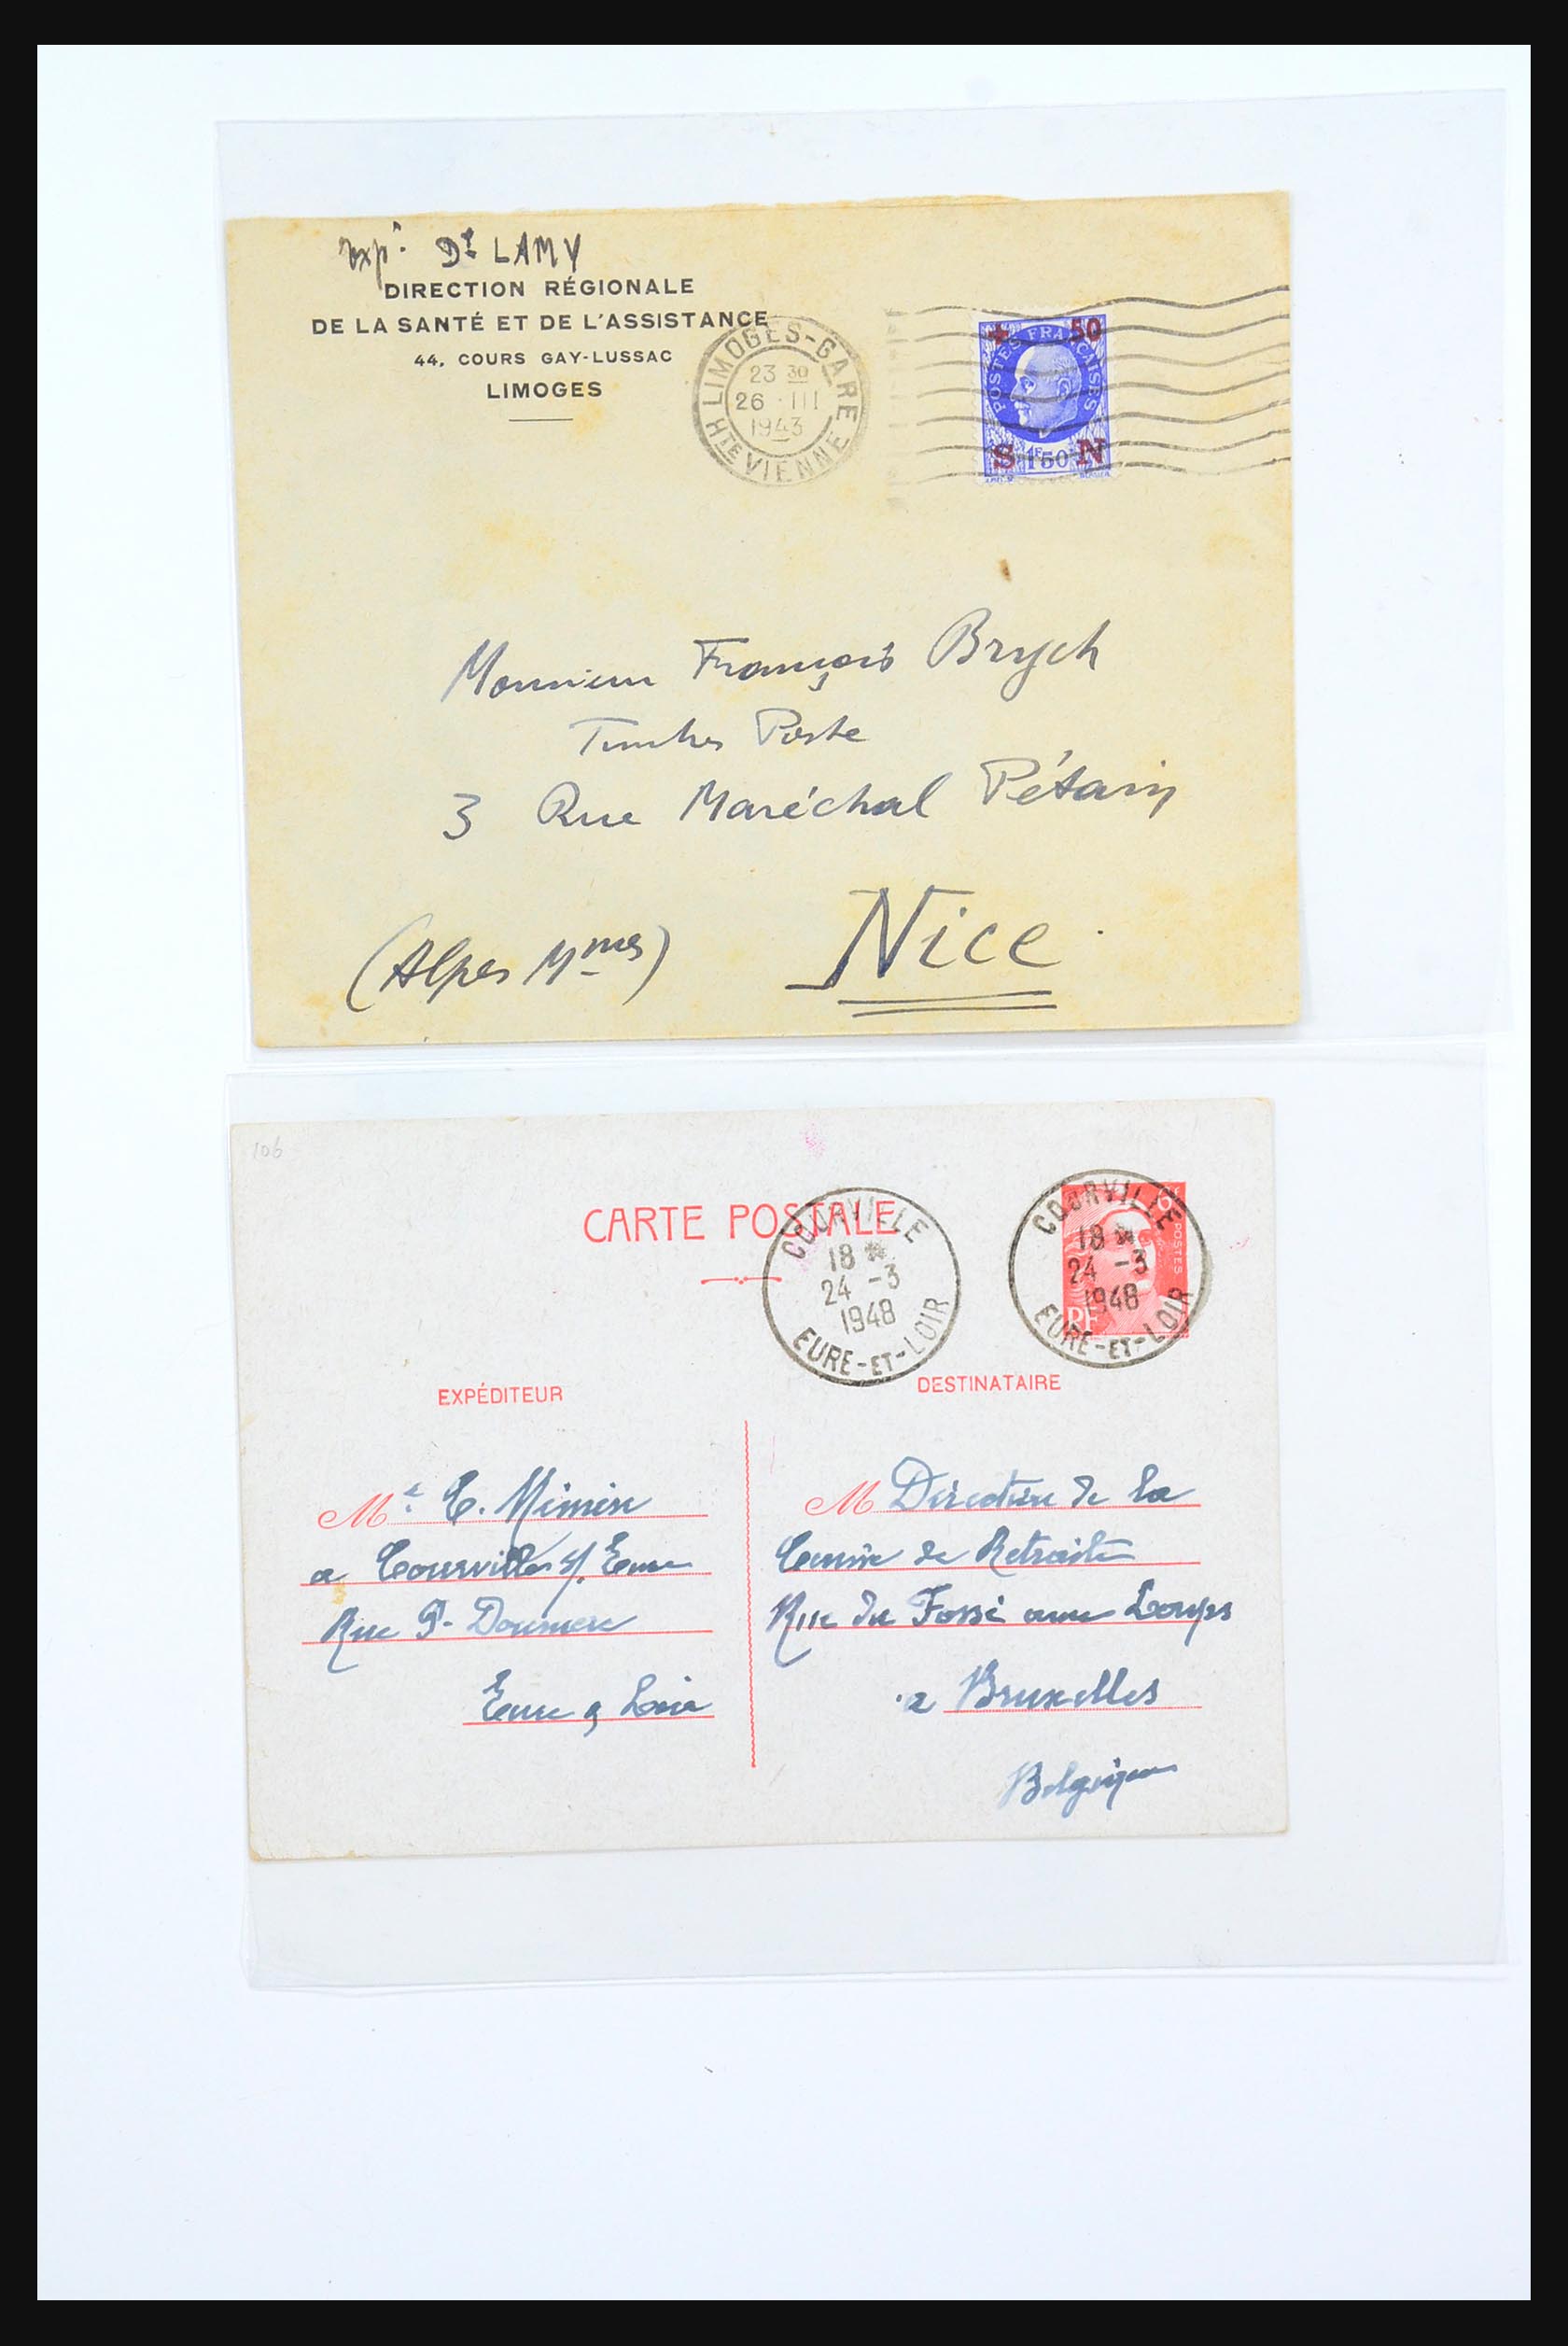 Exp. Dr LAMY
DIRECTION RÉGIONALE
DE LA SANTÉ ET DE L'ASSISTANCE
44, COURS GAY-LUSSAC
LIMOGES
LIMOGES-GARE
23 30
26 · III
1943
HTE VIENNE
+ 50
POSTES FRANÇAISES
S 1F50 N
Monsieur François Brych
Timbres Poste
3 Rue Maréchal Pétain
(Alpes Mmes) Nice
106
CARTE POSTALE
COURVILLE
18 *
24 -3
1948
EURE-ET-LOIR
COURVILLE
18 *
24 -3
1948
EURE-ET-LOIR
POSTES
RF
EXPÉDITEUR
Me C. Mimin
a Courville s/ Eure
Rue P. Doumer
Eure & Loir
DESTINATAIRE
M Directeur de la
Caisse de Retraite
Rue du Fossé aux Loups
a Bruxelles
Belgique